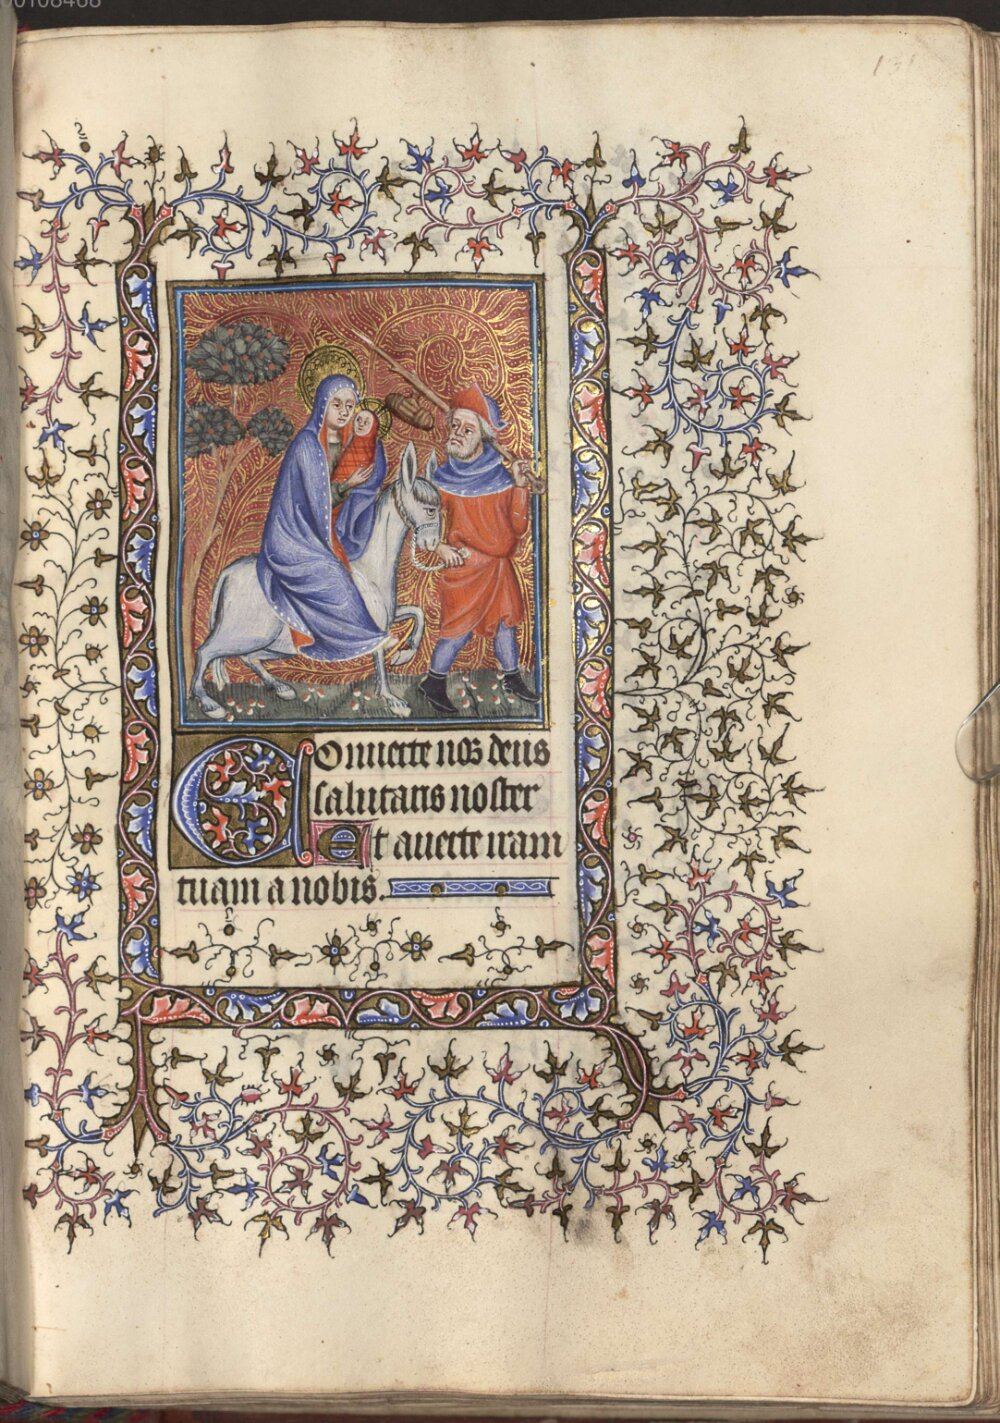 131
Conuerte nos deus
salutaris noster
Et auerte iram
tuam a nobis.